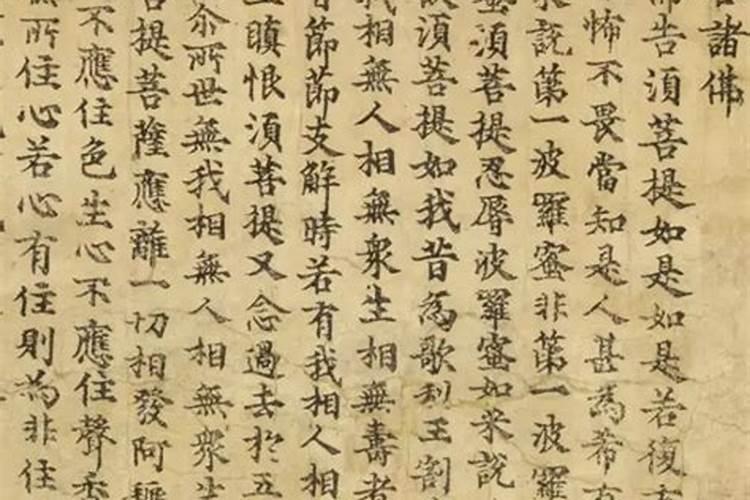 諸佛
佛告須菩提如是如是若復
怖不畏當知是人甚為希有
来說第一波羅蜜非第一波羅
須菩提忍辱波羅蜜如来說
須菩提如我昔為歌利王割
我相無人相無衆生相無壽者
節節支解時若有我相人相
瞋恨須菩提又念過去於五
尒所世無我相無人相無衆生
菩提菩薩應離一切相發阿耨
不應住色生心不應住聲香
所住心若心有住則為非住